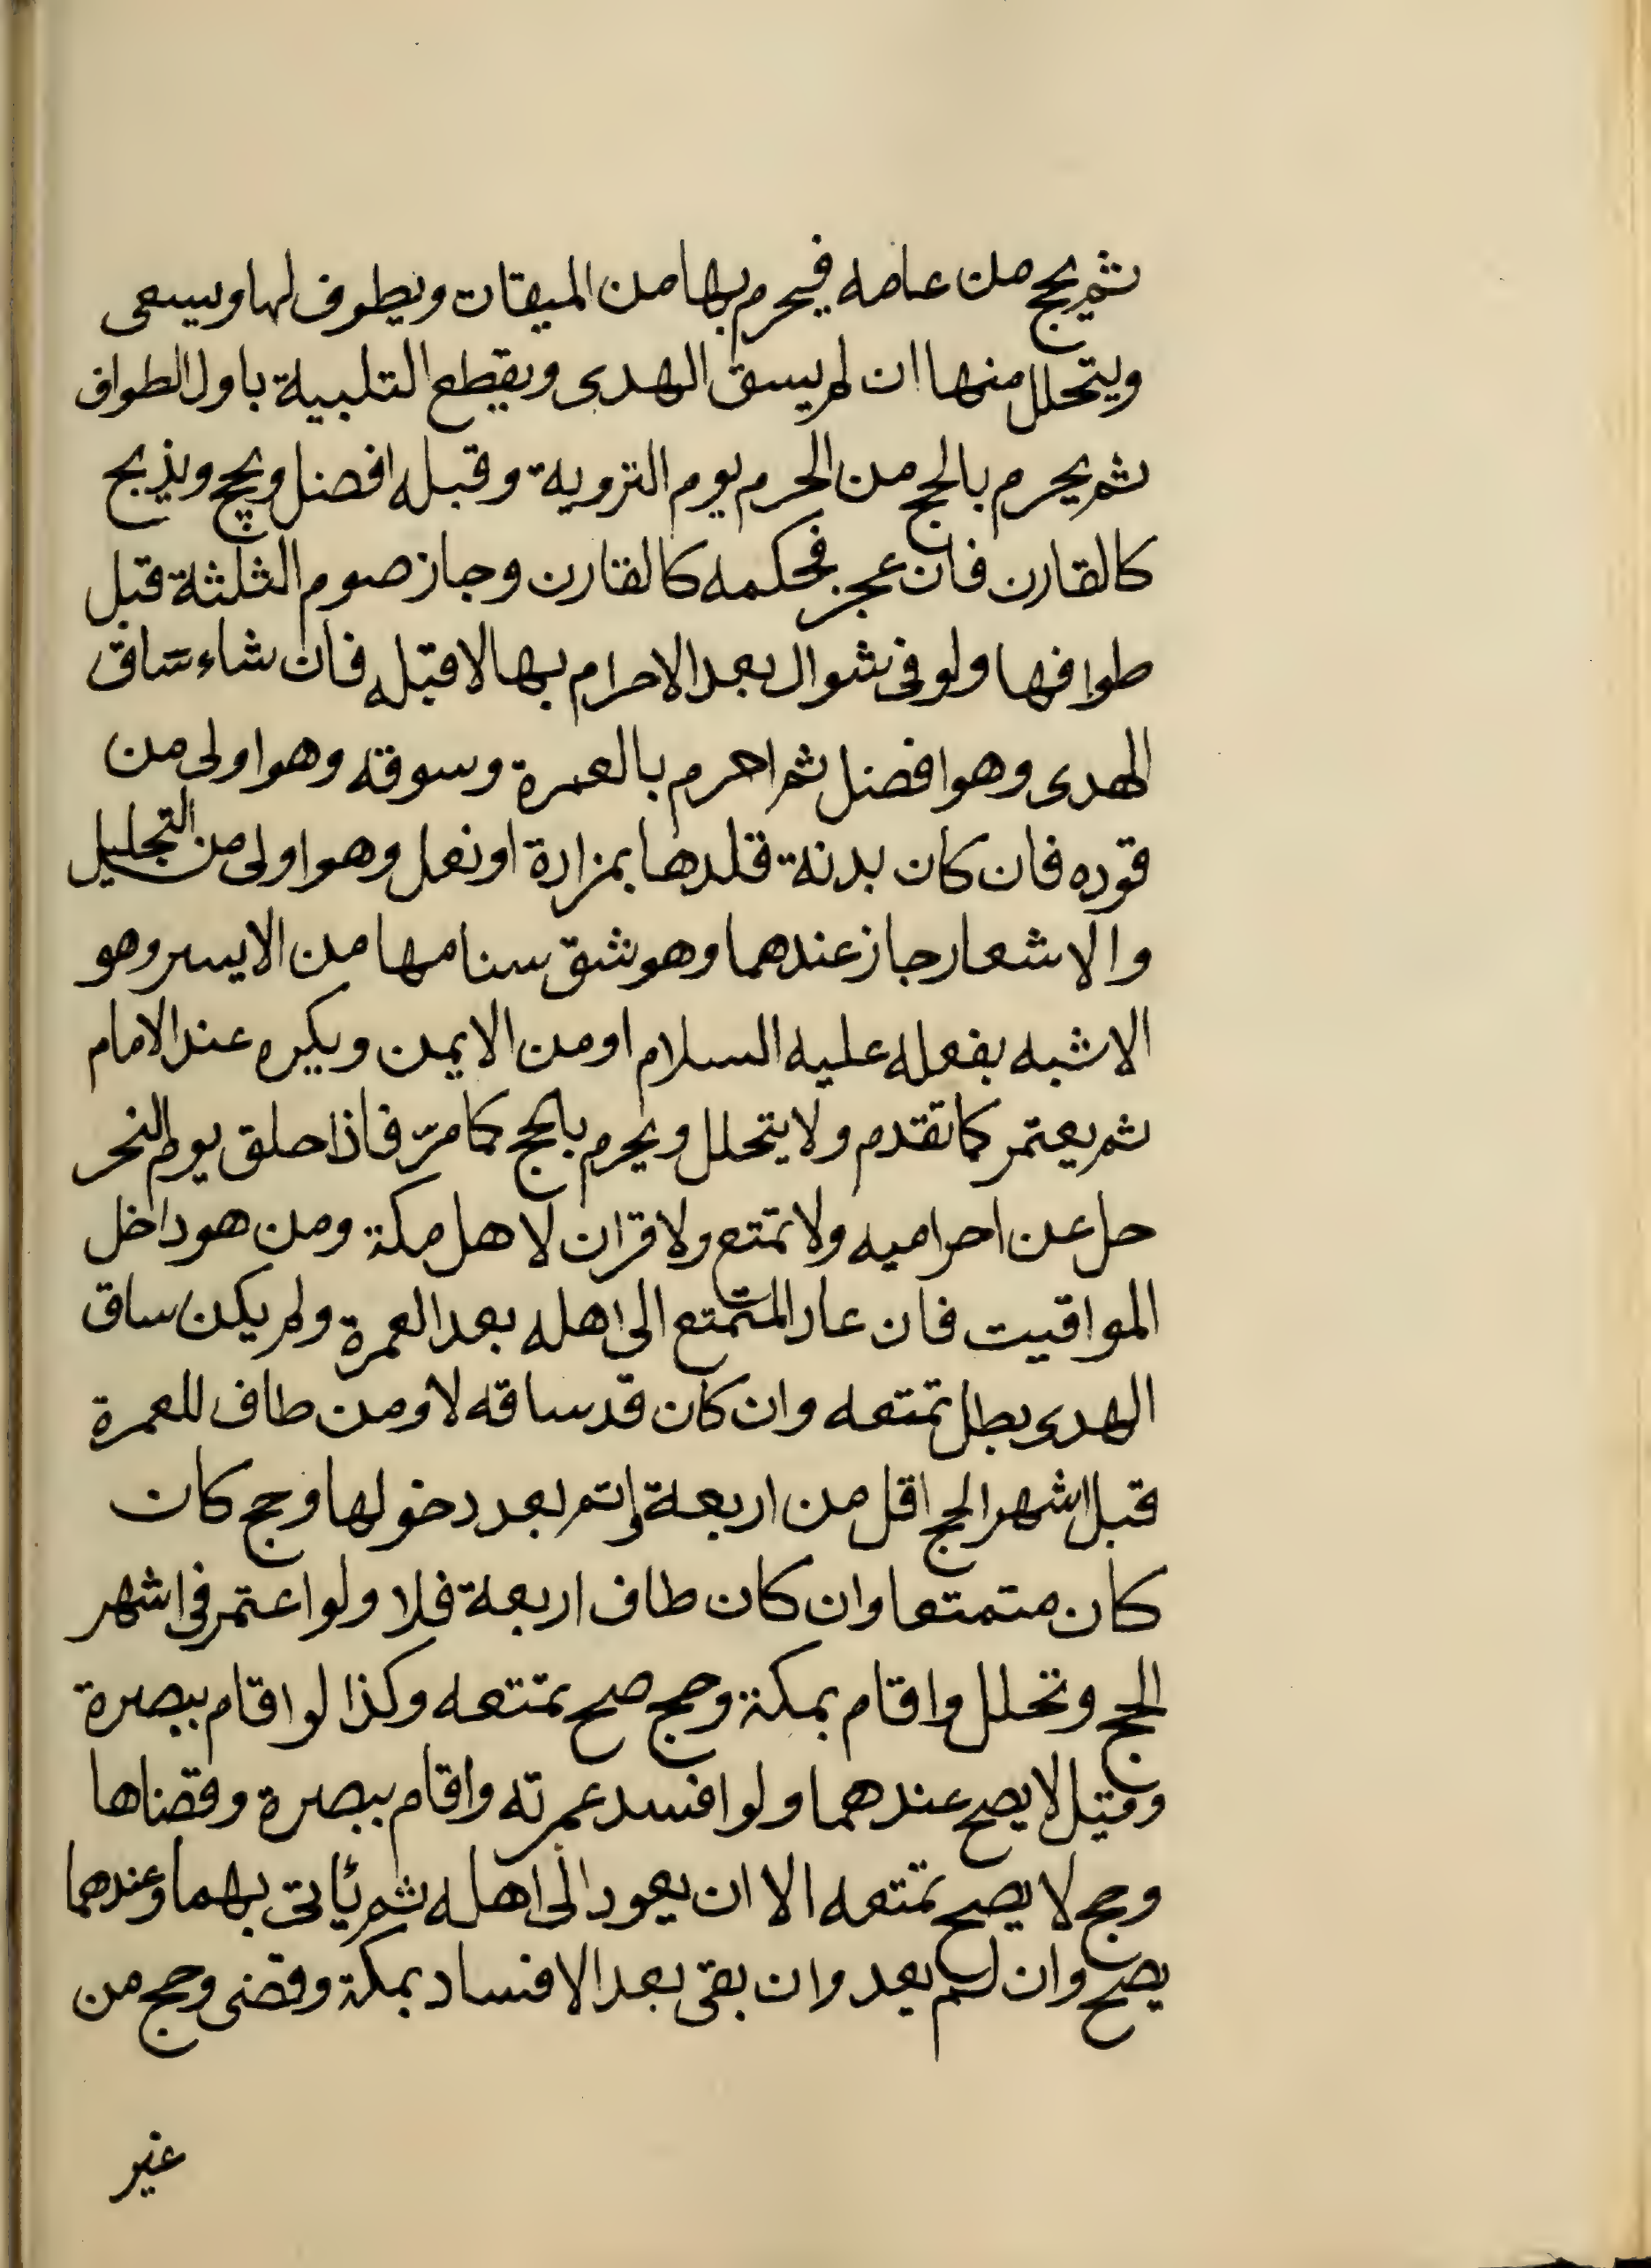 ثم يحج من عامه فيحرم بها من الميقات ويطوف لها ويسعى
ويتحلل منها ان لم يسق الهدى ويقطع التلبية باول الطواف
ثم يحرم بالحج من الحرم يوم التروية وقبله افضل ويحج ويذبح
كالقارن فان عجز فحكمه كالقارن وجاز صوم الثلثة قبل
طوافها ولو فى شوال بعد الاحرام بها لا قبله فان شاء ساق
الهدى وهو افضل ثم احرم بالعمرة وسوقه وهو اولى من
قوده فان كان بدنة قلدها بمزادة او نعل وهو اولى من التجليل
والاشعار جاز عندهما وهو شق سنامها من الايسر وهو
الاشبه بفعله عليه السلام او من الايمن ويكره عند الامام
ثم يعتمر كما تقدم ولا يتحلل ويحرم بالحج كما مرّ فاذا حلق يوم النحر
حل عن احراميه ولا تمتع ولا قران لاهل مكة ومن هو داخل
المواقيت فان عاد المتمتع الى اهله بعد العمرة ولم يكن ساق
الهدى بطل تمتعه وان كان قد ساقه لا ومن طاف للعمرة
قبل اشهر الحج اقل من اربعة واتم بعد دخولها وحج كان
كان متمتعا وان كان طاف اربعة فلا ولو اعتمر فى اشهر
الحج وتحلل واقام بمكة وحج صح تمتعه وكذا لو اقام ببصرة
وقيل لا يصح عندهما ولو افسد عمرته واقام ببصرة وقضاها
وحج لا يصح تمتعه الا ان يعود الى اهله ثم يأتى بهما وعندهما
يصح وان لم يعد وان بقى بعد الافساد بمكة وقضى وحج من
غير